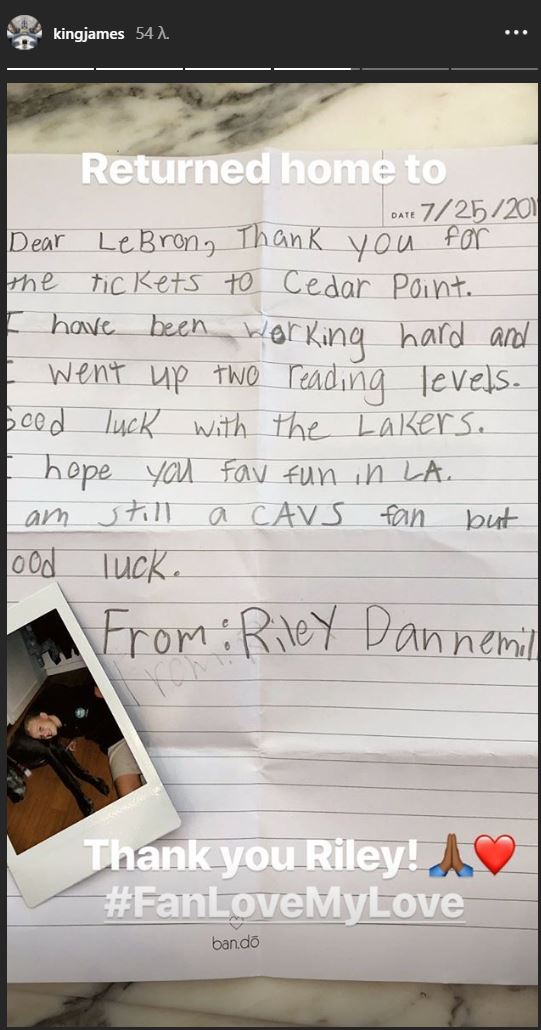 kingjames 54 λ.
Returned home to
DATE 7/25/201
Dear LeBron, Thank you for
the tickets to Cedar Point.
I have been working hard and
I went up two reading levels.
Good luck with the Lakers.
I hope you fav fun in LA.
am still a CAVS fan but
ood luck.
From: Riley Dannemill
From:
Thank you Riley! 🙏🏾❤️
#FanLoveMyLove
ban.dō